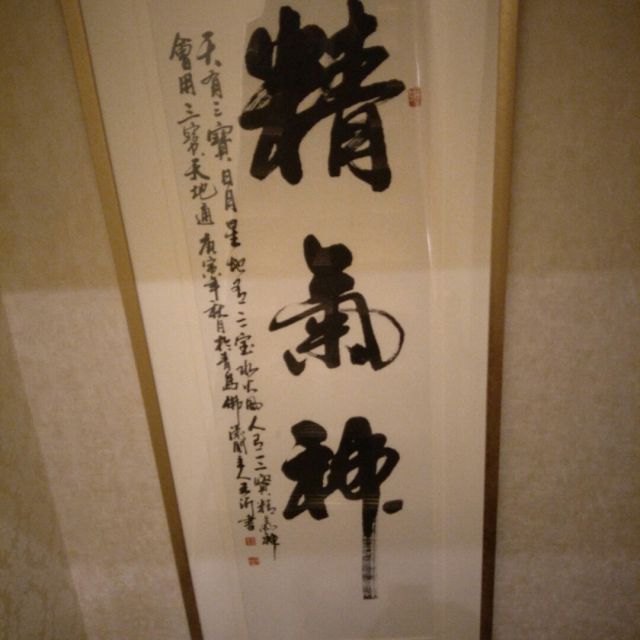 精氣神
天有三寶日月星地有三宝水火風人有三寶精氣神
會用三寶天地通庚寅年秋月於青島